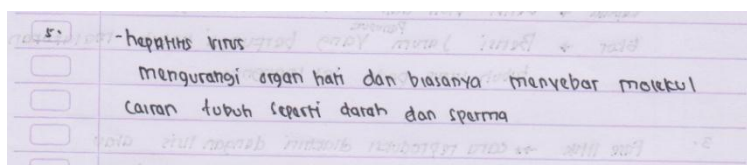 5.
-hepatitis virus
mengurangi organ hati dan biasanya menyebar molekul
cairan tubuh seperti darah dan sperma